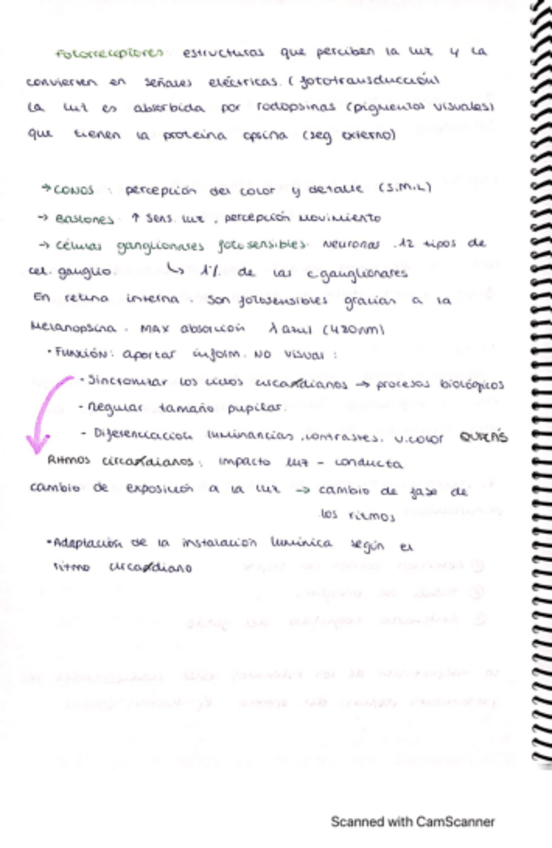 Fotorreceptores estructuras que perciben la luz y la
convierten en señales eléctricas. (fototransducción)
La luz es absorbida por rodopsinas (pigmentos visuales)
que tienen la proteína opsina (seg externo)
→ CONOS : percepción del color y detalle (S.M.L)
→ Bastones ↑ sens. luz , percepción movimiento
→ células ganglionares fotosensibles neuronas. 12 tipos de
cel. ganglio. ↳ 1% de las c. ganglionares
En retina interna. Son fotosensibles gracias a la
Melanopsina. MAX absorción λ azul (480nm)
• Función: aportar inform. NO visual :
- Sincronizar los ciclos circadianos → procesos biológicos
- Regular tamaño pupilar.
- Diferenciación luminancias, contrastes, v.color QUIZÁS
Ritmos circadianos: impacto luz - conducta
cambio de exposición a la luz → cambio de fase de
los ritmos
•Adaptación de la instalación lumínica según el
ritmo circadiano
Scanned with CamScanner